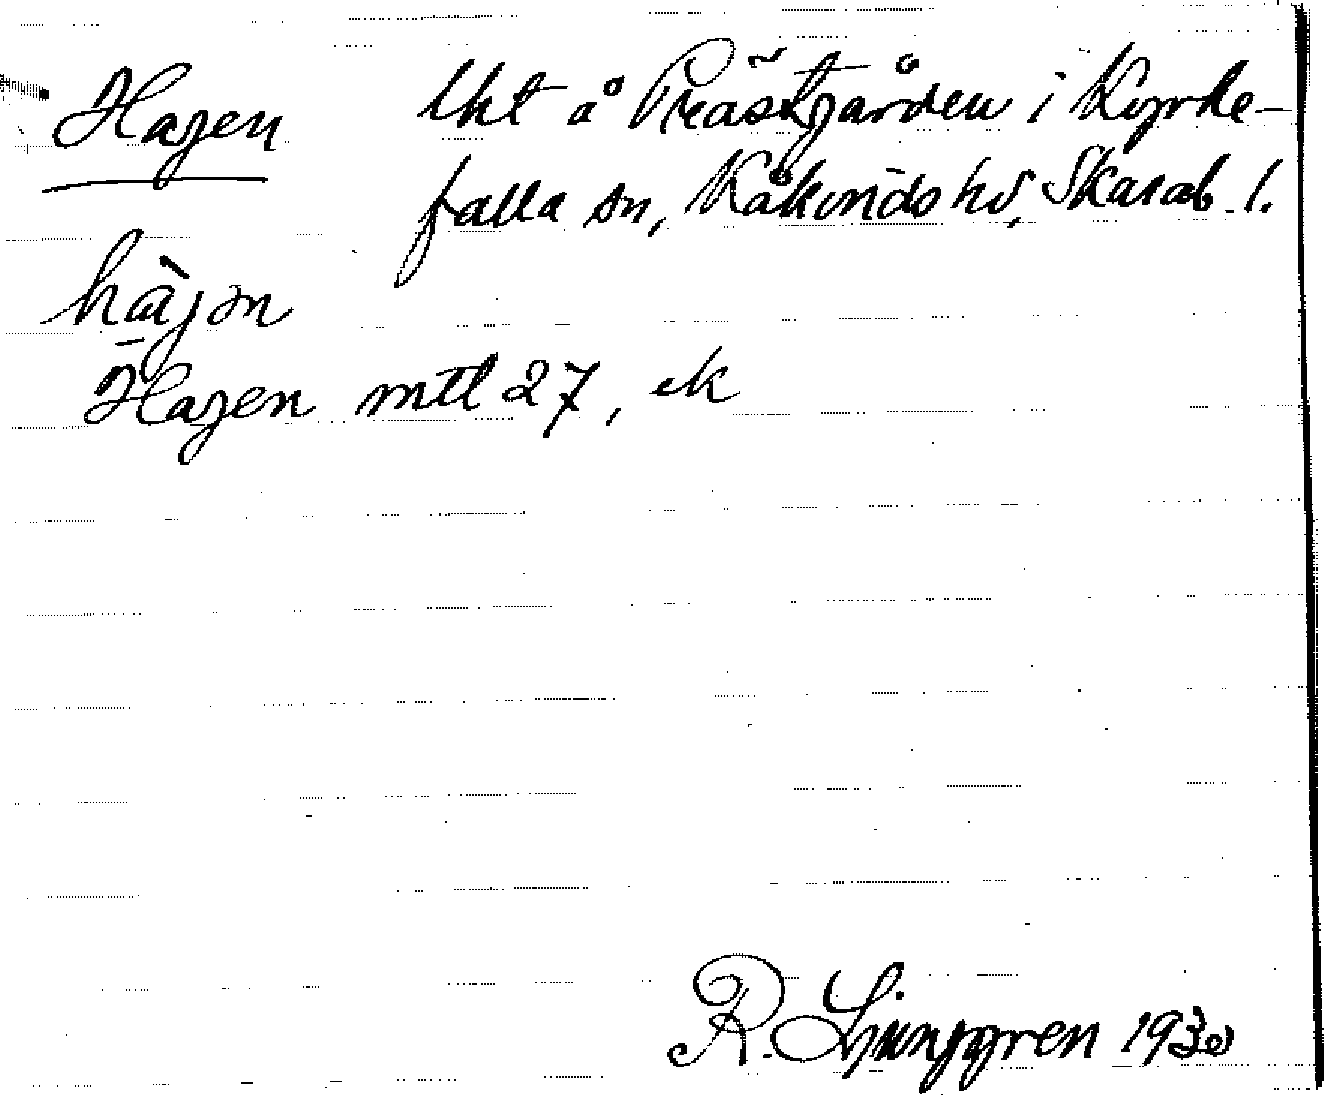 Hagen lht å Prästgården i Kyrke-
falla sn, Kåkinds hd, Skarab. l.
hàjən
Hagen mtl 27, ek
R. Ljunggren 1930